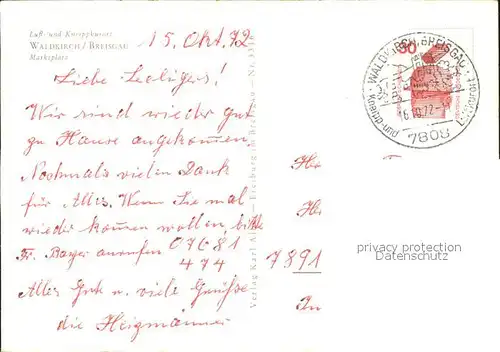 Luft- und Kneippkurort
WALDKIRCH / BREISGAU
Marktplatz
15. Okt. 72
Liebe
Wir sind wieder gut
zu Hause angekommen.
Nochmals vielen Dank
für Alles. Wenn Sie mal
wieder kommen wollen, bitte
Fr. Bayer anrufen 07681
474
Alles Gute u. viele Grüße
die
Verlag Karl
Freiburg im Breisgau
He
He
7891
In
30
WALDKIRCH, BREISGAU
Kneipp- und
16.10.72
7808
privacy protection
Datenschutz